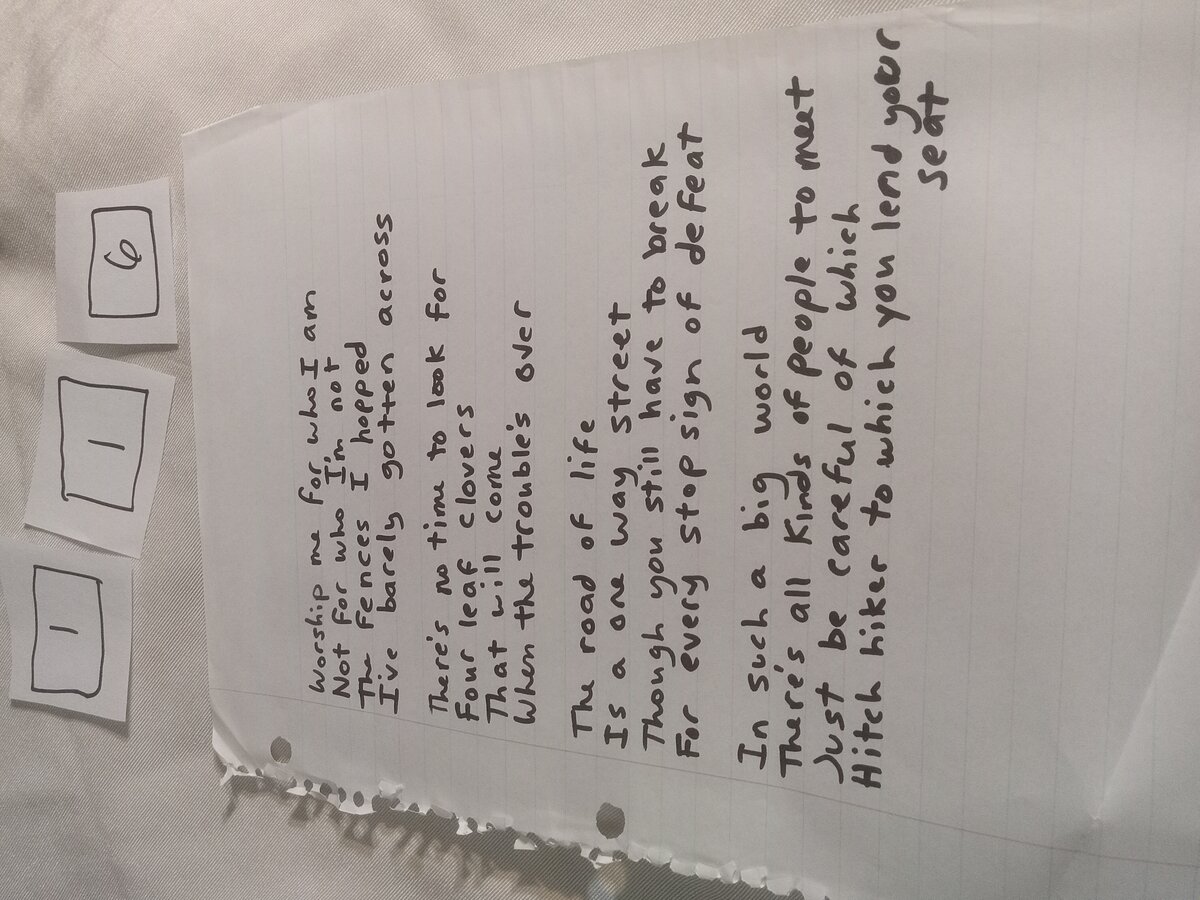 1
1
6
Worship me for who I am
Not for who I'm not
The fences I hopped
I've barely gotten across
There's no time to look for
Four leaf clovers
That will come
When the trouble's over
The road of life
Is a one way street
Though you still have to break
For every stop sign of defeat
In such a big world
There's all kinds of people to meet
Just be careful of which
Hitch hiker to which you lend your
seat